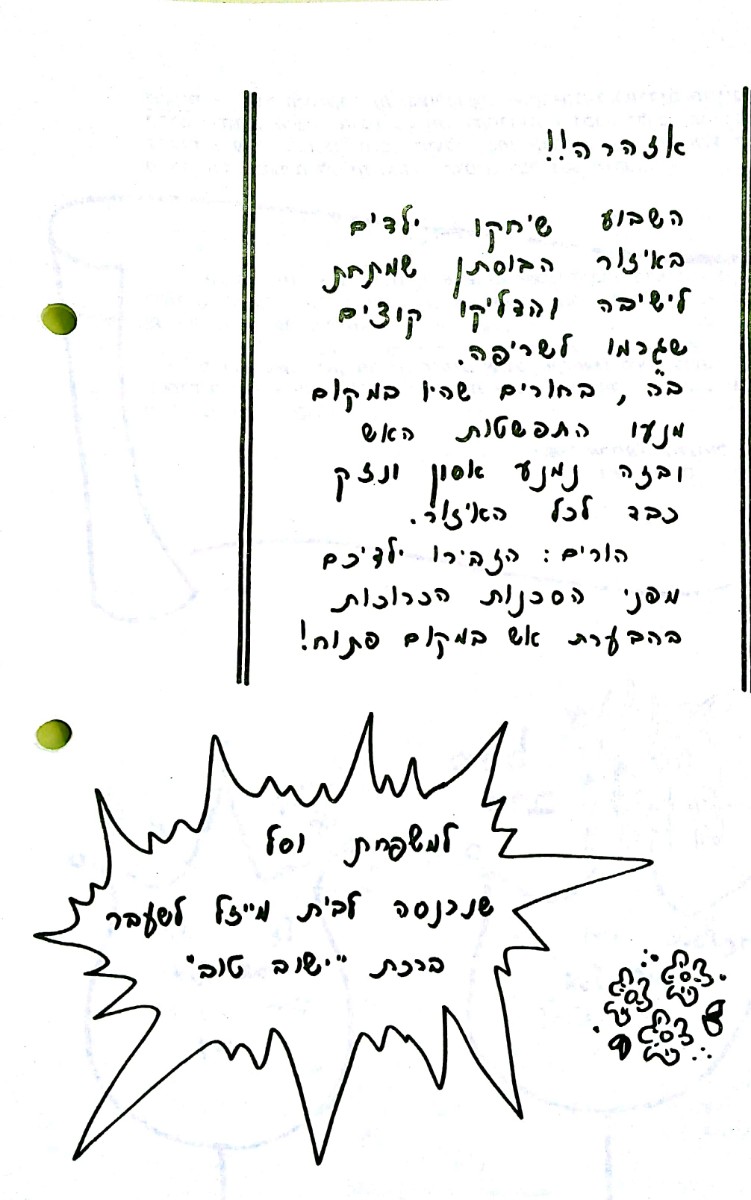 אזהרה!!
השבוע שיחקו ילדים
באיזור הבוסתן שמתחת
לישיבה והדליקו קוצים
שגרמו לשריפה.
ב"ה, בחורים שהיו במקום
מנעו התפשטות האש
ובזה נמנע אסון ונזק
כבד לכל האיזור.
הורים: הזהירו ילדיכם
מפני הסכנות הכרוכות
בהבערת אש במקום פתוח!
למשפחת וסל
שנכנסה לבית מייזל לשעבר
ברכת "ישוב טוב"